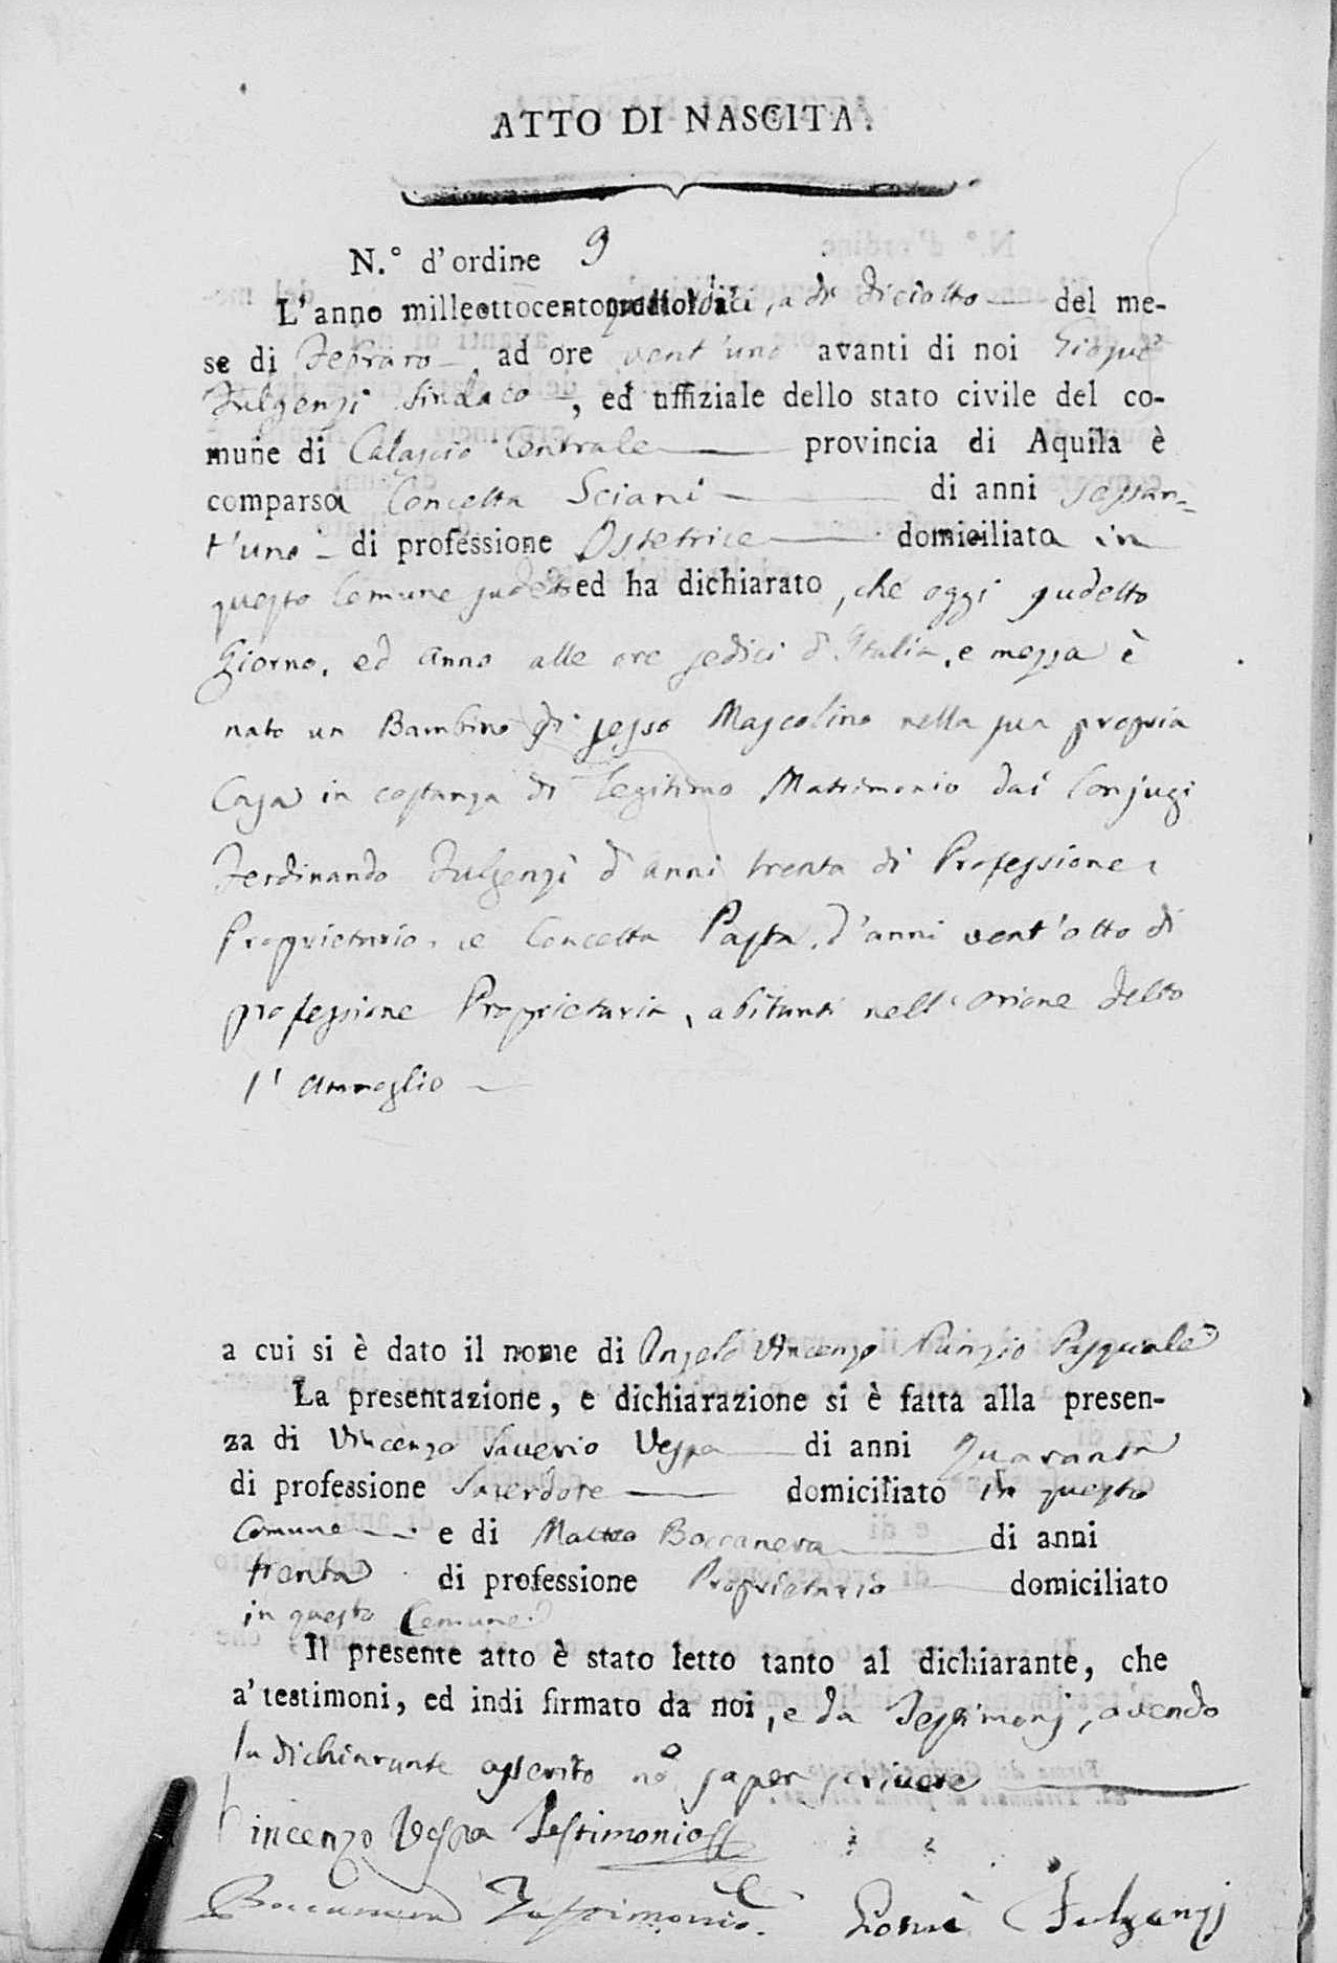 ATTO DI NASCITA.
N.° d'ordine 9
L'anno milleottocento , a dì diciotto del me-
se di Febraro ad ore vent'uno avanti di noi Giosuè
Fulgenzi Sindaco , ed uffiziale dello stato civile del co-
mune di Calascio Centrale provincia di Aquila è
comparsa Concetta Sciani di anni sessan-
t'uno di professione Ostetrice domiciliata in
questo Comune sudetto ed ha dichiarato, che oggi sudetto
Giorno, ed anno alle ore sedici d'Italia, e mezza è
nato un Bambino di sesso Mascolino nella sua propria
Casa in costanza di legitimo Matrimonio dai Conjugi
Ferdinando Fulgenzi d'anni trenta di Professione
Proprietario, e Concetta Pasta, d'anni vent'otto di
professione Proprietaria, abitanti nell' orione detto
l'
a cui si è dato il nome di Angelo Vincenzo Nunzio Pasquale
La presentazione, e dichiarazione si è fatta alla presen-
za di Vincenzo Saverio Vespa di anni quaranta
di professione Sacerdote domiciliato in questo
Comune e di Matteo Boccanera di anni
trenta di professione Proprietario domiciliato
in questo Comune
Il presente atto è stato letto tanto al dichiarante, che
a' testimoni, ed indi firmato da noi, e da Testimonj, avendo
la dichiarante asserito nō saper scrivere
Vincenzo Vespa Testimonio
Boccanera Testimonio. Giosuè Fulgenzj